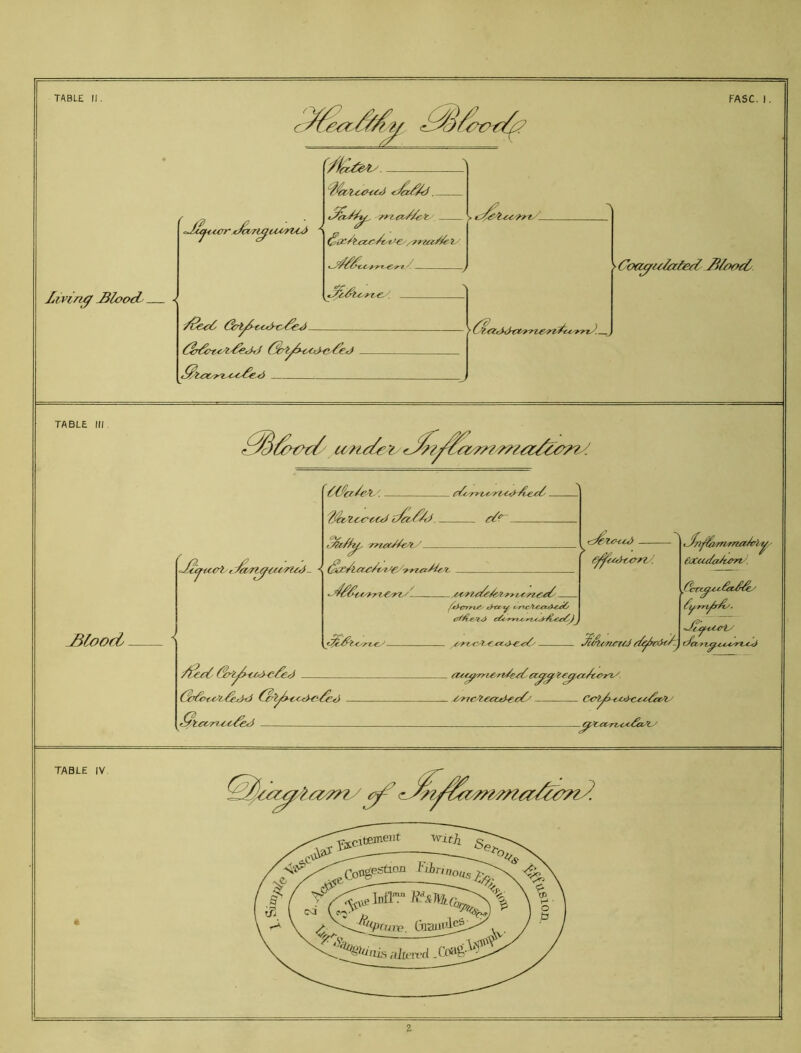 TABLE II.
FASC. I.
Healthy Blood,
Water.
Various Salts.
Fatty matter
Extractive matter
Albumen.
Fibrine.
Liquor Sanguinis
Serum
Living Blood
Coagulated Blood.
Red Corpuscles
Colourless Corpuscles
Granules
Crassamentum.
TABLE III.
Blood under Inflammation.
Water. diminished
Various Salts. do
Fatty matter
Extractive matter
Albumen undetermined
(some say increased
others diminished)
Fibrine increased
Liquor Sanguinis
Serous
effusion.
Fibrinous deposit
Inflammatory
exudation.
Coagulable
lymph.
Liquor
Sanguinis
Blood
Red Corpuscles augmented aggregation.
Colourless Corpuscles increased Corpuscular
Granules granular
TABLE IV.
Diagram of Inflammation.
1. Simple Vascular Excitement with Serous Effusion
2. Active Congestion Fibrinous Effusion
Liqr. Sanguinis altered. Coag. Lymph.
3. True Inflmn. Rd. & Wh. Corpusc.
Rupture. Granules
2